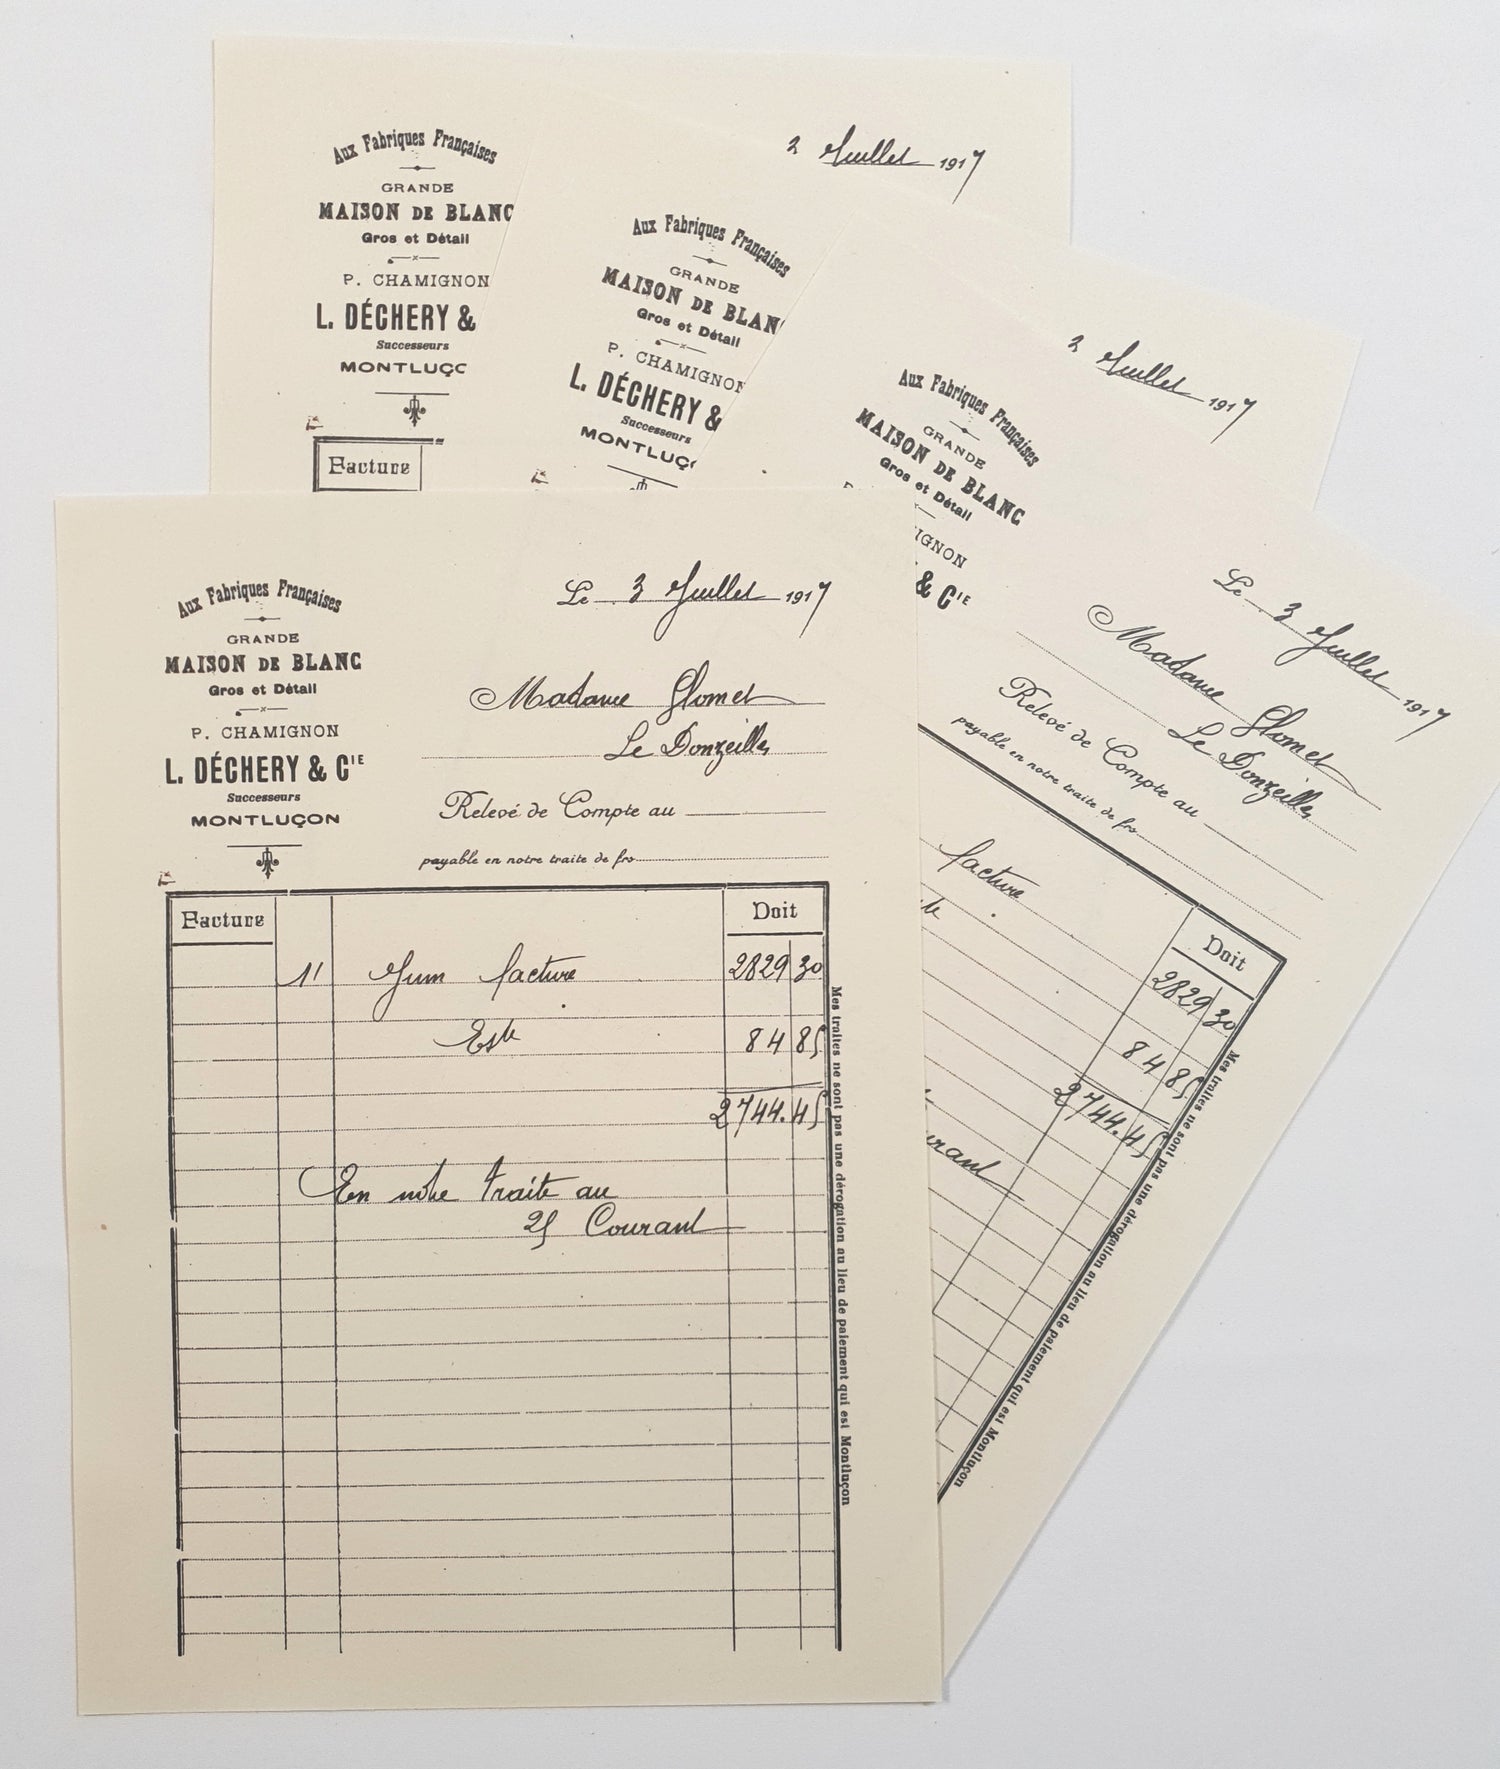 Aux Fabriques Françaises
GRANDE
MAISON DE BLANC
Gros et Détail
P. CHAMIGNON
L. DÉCHERY &
Successeurs
MONTLUÇO
Facture
2 Juillet 1917
Aux Fabriques Françaises
GRANDE
MAISON DE BLAN
Gros et Détail
P. CHAMIGNON
L. DÉCHERY &
Successeurs
MONTLUÇ
3 Juillet 1917
Aux Fabriques Françaises
GRANDE
MAISON DE BLANC
Gros et Détail
IGNON
& CIE
Le 3 Juillet 1917
Madame Glomet
Le Donzeille
Relevé de Compte au
payable en notre traite de frs
facture
Doit
2829 30
84 85
2744.45
ourant
Mes traites ne sont pas une dérogation au lieu de paiement qui est Montluçon
Aux Fabriques Françaises
GRANDE
MAISON DE BLANC
Gros et Détail
P. CHAMIGNON
L. DÉCHERY & CIE
Successeurs
MONTLUÇON
Le 3 Juillet 1917
Madame Glomet
Le Donzeille
Relevé de Compte au
payable en notre traite de frs
Facture
Doit
11 Juin facture 2829 30
Este 84 85
2744.45
En notre traite au
25 Courant
Mes traites ne sont pas une dérogation au lieu de paiement qui est Montluçon